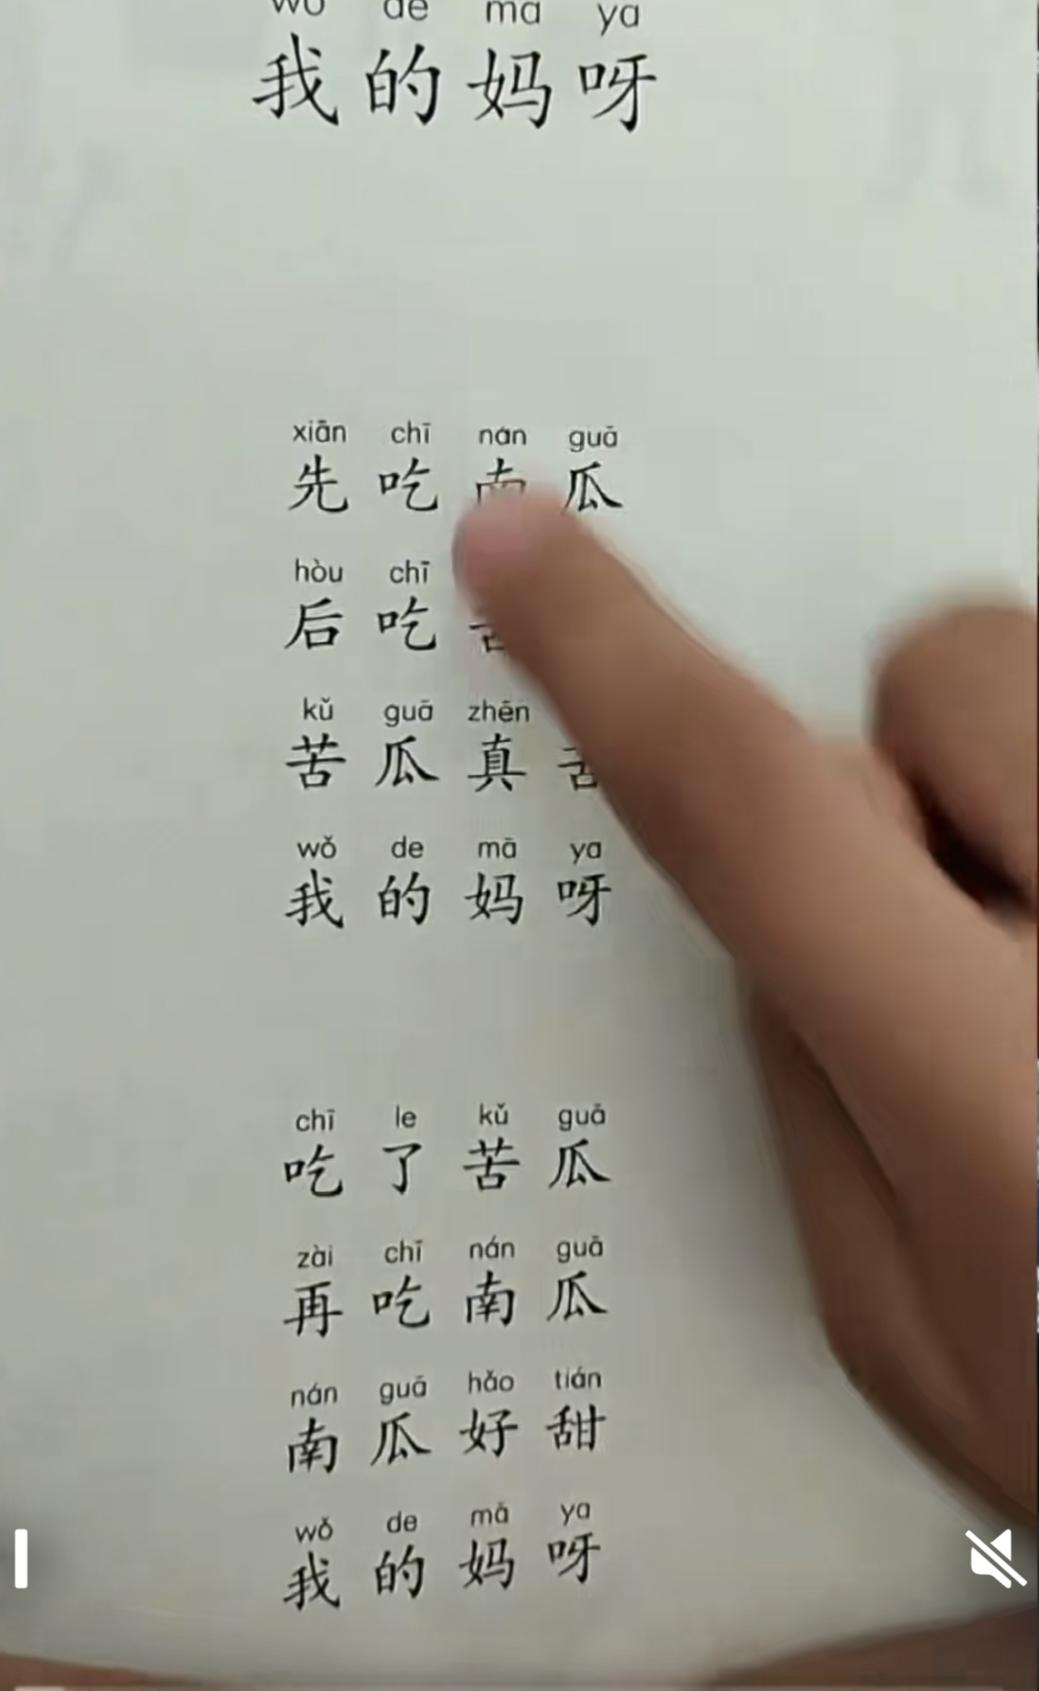 wǒ de mā ya
我的妈呀
xiān chī nán guā
先吃南瓜
hòu chī
后吃
kǔ guā zhēn
苦瓜真苦
wǒ de mā ya
我的妈呀
chī le kǔ guā
吃了苦瓜
zài chī nán guā
再吃南瓜
nán guā hǎo tián
南瓜好甜
wǒ de mā ya
我的妈呀